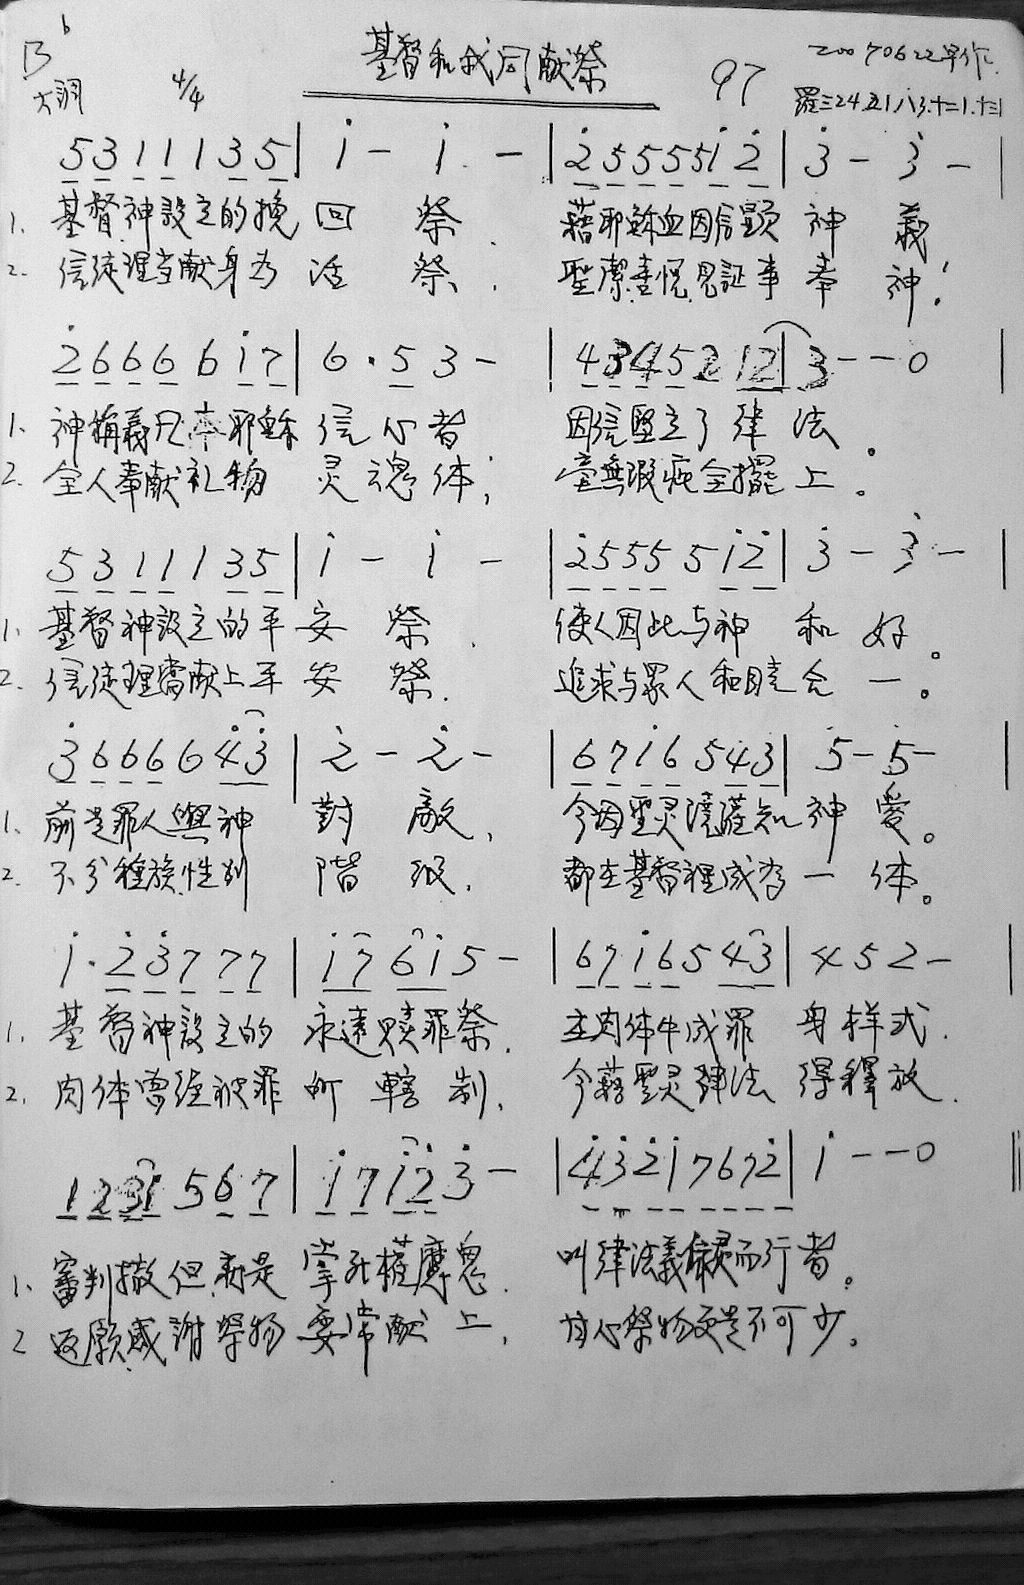 B♭ 基督和我同献祭 97 20070622早作
大調 4/4 羅三24.五1.八3.十二1.十三1
5 3 1 1 1 3 5 | i - i - | 2̇ 5 5 5 5 5 i 2̇ | 3̇ - 3̇ - |
1. 基督神設立的挽回祭. 藉耶穌血因信顯神義
2. 信徒理当献身为活祭. 聖潔喜悦見証事奉神!
2̇ 6 6 6 6 i 7 | 6 . 5 3 - | 4 3 4 5 2 1 2 | 3 - - 0 |
1. 神稱義凡本耶穌信心者 因信堅立了律法。
2. 全人奉献礼物灵魂体; 毫無瑕疵全擺上。
5 3 1 1 1 3 5 | i - i - | 2̇ 5 5 5 5 i 2̇ | 3̇ - 3̇ - |
1. 基督神設立的平安祭. 使人因此与神和好。
2. 信徒理當献上平安祭. 追求与眾人和睦合一。
3̇ 6 6 6 6 4̇ 3̇ | 2̇ - 2̇ - | 6 7 i 6 5 4 3 | 5 - 5 - |
1. 前是罪人與神對敵, 今因聖灵澆灌知神愛。
2. 不分種族性别階级. 都在基督裡成为一体。
i . 2̇ 3̇ 7 7 7 | i 7 6 i 5 - | 6 7 i 6 5 4 3 | 4 5 2 - |
1. 基督神設立的永遠贖罪祭. 主肉体中成罪身样式.
2. 肉体曾经被罪所轄制, 今藉聖灵律法得釋放.
1 2 3 1 5 6 7 | i 7 i 2̇ 3̇ - | 4̇ 3̇ 2̇ i 7 6 7 2̇ | i - - 0 ‖
1. 審判撒但就是掌死權魔鬼. 叫律法義隨灵而行者。
2 还愿感謝祭物要常献上, 甘心祭物更是不可少。